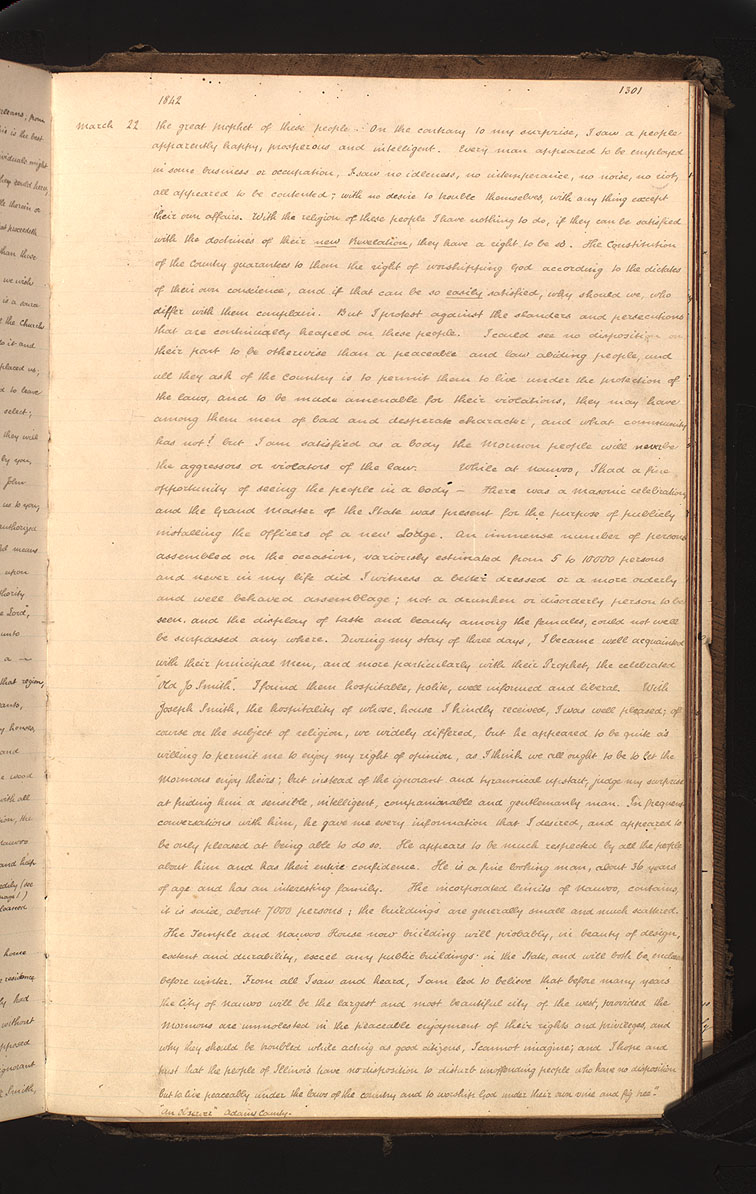 1842
1301
March 22 the great prophet of these people. On the contrary to my surprise, I saw a people
apparently happy, prosperous and intelligent. Every man appeared to be employed
in some business or occupation, I saw no idleness, no intemperance, no noise, no riot,
all appeared to be contented; with no desire to trouble themselves, with any thing except
their own affairs. With the religion of these people I have nothing to do, if they can be satisfied
with the doctrines of their new Revelation, they have a right to be so. The Constitution
of the Country guarantees to them the right of worshipping God according to the dictates
of their own conscience, and if that can be so easily satisfied, why should we, who
differ with them complain. But I protest against the slanders and persecutions
that are continually heaped on these people. I could see no disposition on
their part to be otherwise than a peaceable and law abiding people, and
all they ask of the Country is to permit them to live under the protection of
the laws, and to be made amenable for their violations, they may have
among them men of bad and desperate character, and what community
has not? but I am satisfied as a body the Mormon people will never be
the aggressors or violators of the law. While at Nauvoo, I had a fine
opportunity of seeing the people in a body — There was a masonic celebration
and the Grand Master of the State was present for the purpose of publicly
installing the officers of a new Lodge. An immense number of persons
assembled on the occasion, variously estimated from 5 to 10000 persons
and never in my life did I witness a better dressed or a more orderly
and well behaved assemblage; not a drunken or disorderly person to be
seen, and the display of taste and beauty among the females, could not well
be surpassed any where. During my stay of three days, I became well acquainted
with their principal men, and more particularly with their Prophet, the celebrated
"Old Jo Smith". I found them hospitable, polite, well informed and liberal. With
Joseph Smith, the hospitality of whose house I kindly received, I was well pleased; of
course on the subject of religion, we widely differed, but he appeared to be quite as
willing to permit me to enjoy my right of opinion, as I think we all ought to be to let the
Mormons enjoy theirs; but instead of the ignorant and tyrannical upstart, judge my surprise
at finding him a sensible, intelligent, companionable and gentlemanly man. In frequent
conversations with him, he gave me every information that I desired, and appeared to
be only pleased at being able to do so. He appears to be much respected by all the people
about him and has their entire confidence. He is a fine looking man, about 36 years
of age and has an interesting family. The incorporated limits of Nauvoo, contains,
it is said, about 7000 persons; the buildings are generally small and much scattered.
The Temple and Nauvoo House now building will probably, in beauty of design,
extent and durability, excel any public buildings in the State, and will both be enclosed
before winter. From all I saw and heard, I am led to believe that before many years
the City of Nauvoo will be the largest and most beautiful city of the west, provided the
Mormons are unmolested in the peaceable enjoyment of their rights and privileges, and
why they should be troubled while acting as good citizens, I cannot imagine; and I hope and
trust that the people of Illinois have no disposition to disturb unoffending people who have no disposition
but to live peaceably under the laws of the country and to worship God under their own vine and fig tree."
"An Observer" Adams County.